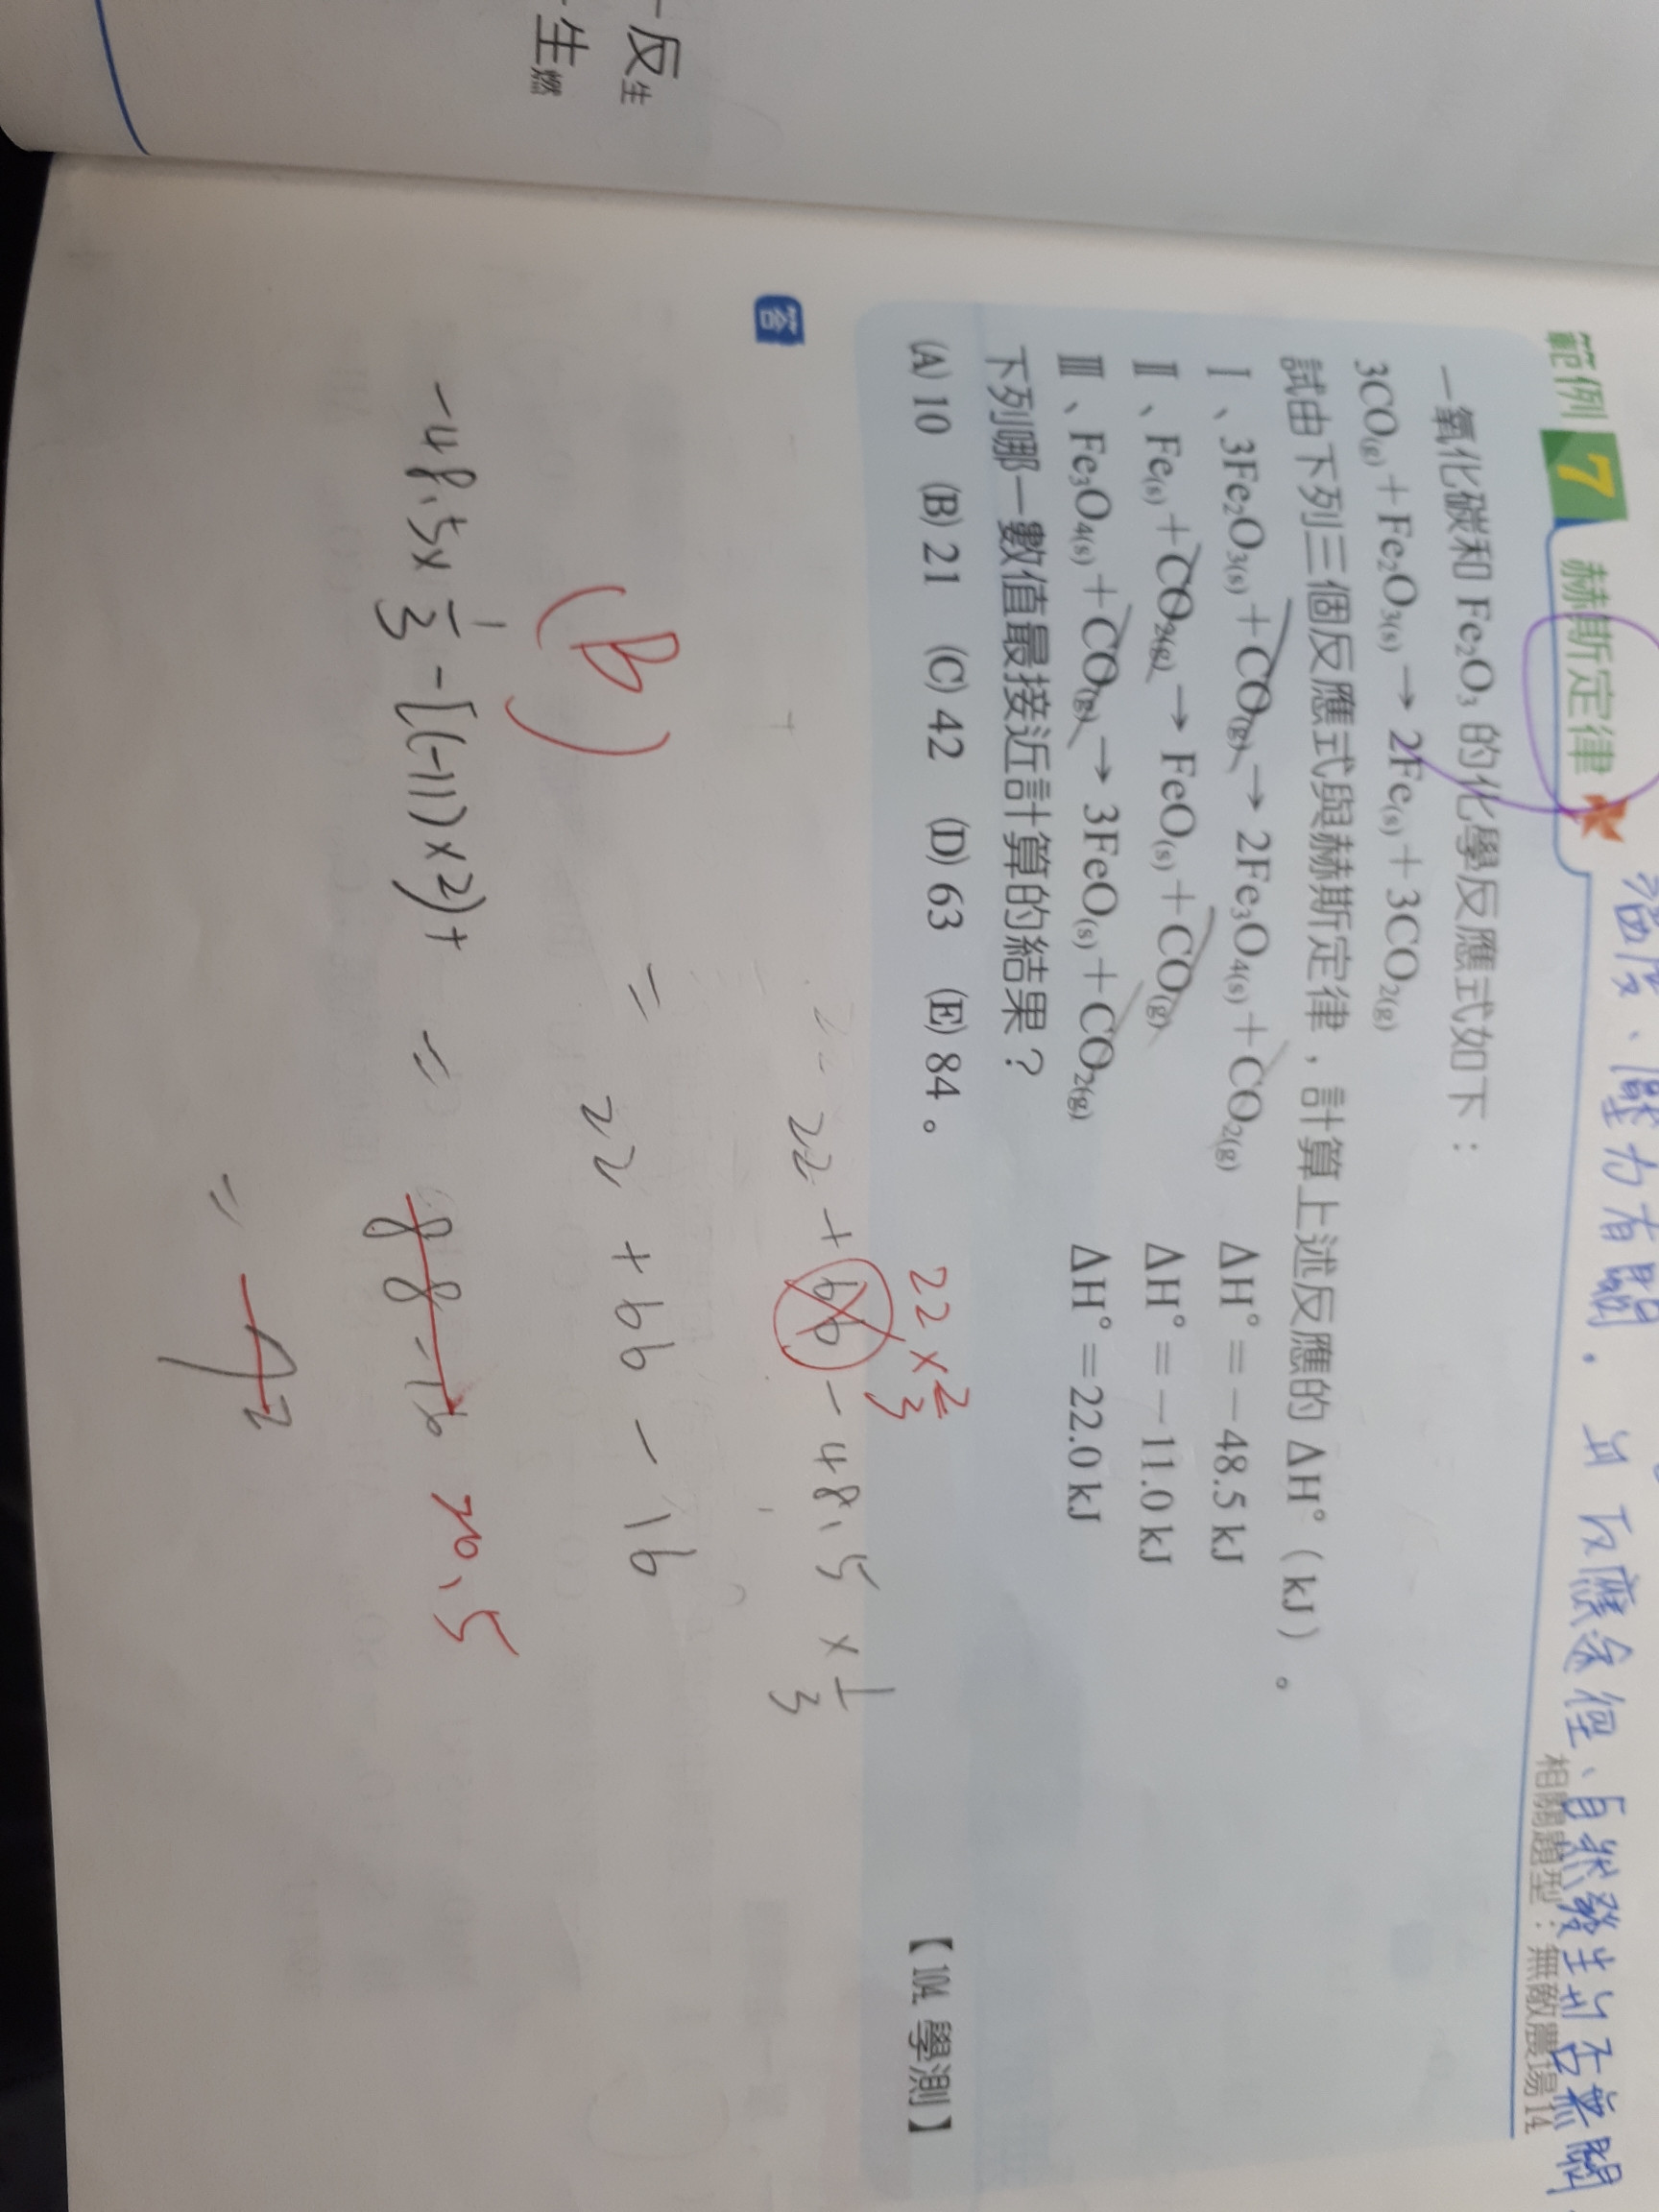 反生
生燃
溫度、壓力有關,与反應途徑、自然發生与否無關
範例 7 赫斯定律
相關題型:無敵農場14.
一氧化碳和 Fe₂O₃ 的化學反應式如下:
3CO(g)+Fe₂O₃(s)→2Fe(s)+3CO₂(g)
試由下列三個反應式與赫斯定律,計算上述反應的 ΔH°(kJ)。
Ⅰ、3Fe₂O₃(s)+CO(g)→2Fe₃O₄(s)+CO₂(g) ΔH°=-48.5 kJ
Ⅱ、Fe(s)+CO₂(g)→FeO(s)+CO(g) ΔH°=-11.0 kJ
Ⅲ、Fe₃O₄(s)+CO(g)→3FeO(s)+CO₂(g) ΔH°=22.0 kJ
下列哪一數值最接近計算的結果?
(A) 10 (B) 21 (C) 42 (D) 63 (E) 84。
【104. 學測】
答
22×2/3
22+66-48.5×1/3
(B)
= 22+66-16
-48.5×1/3-[(-11)×2]+ = 88-16 20.5
= 72